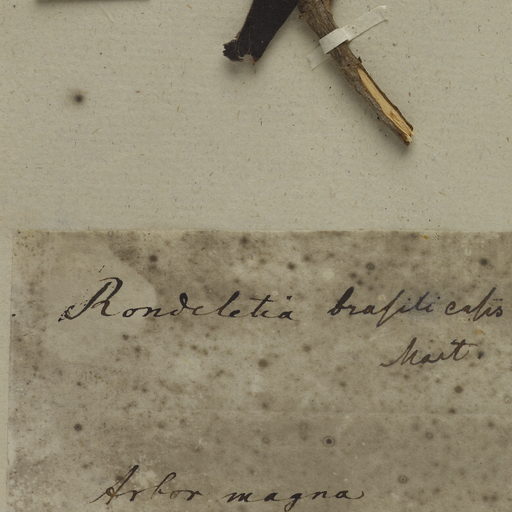 Rondeletia braſilicaſis
Mart.
Arbor magna